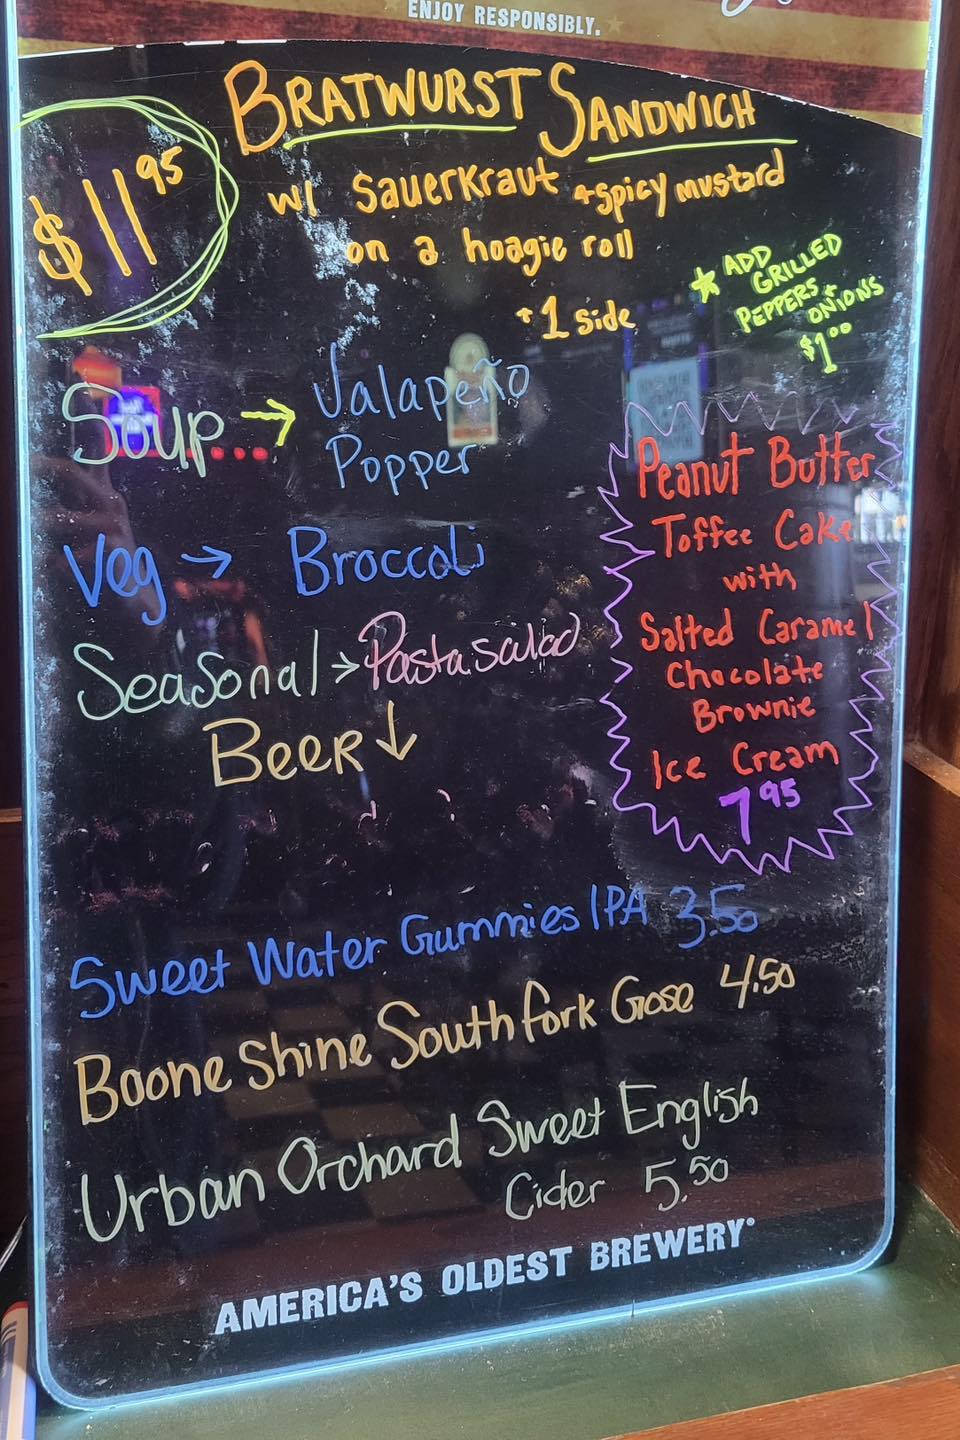 ENJOY RESPONSIBLY.
BRATWURST SANDWICH
$11.95
w/ Sauerkraut + spicy mustard
on a hoagie roll
+ 1 side
★ ADD
GRILLED
PEPPERS +
ONIONS
$1.00
Soup → Jalapeño
Popper
Veg → Broccoli
Seasonal → Pasta salad
Peanut Butter
Toffee Cake
with
Salted Caramel
Chocolate
Brownie
Ice Cream
7.95
BEER ↓
Sweet Water Gummies IPA 3.50
Boone Shine South fork Gose 4.50
Urban Orchard Sweet English
Cider 5.50
AMERICA'S OLDEST BREWERY®